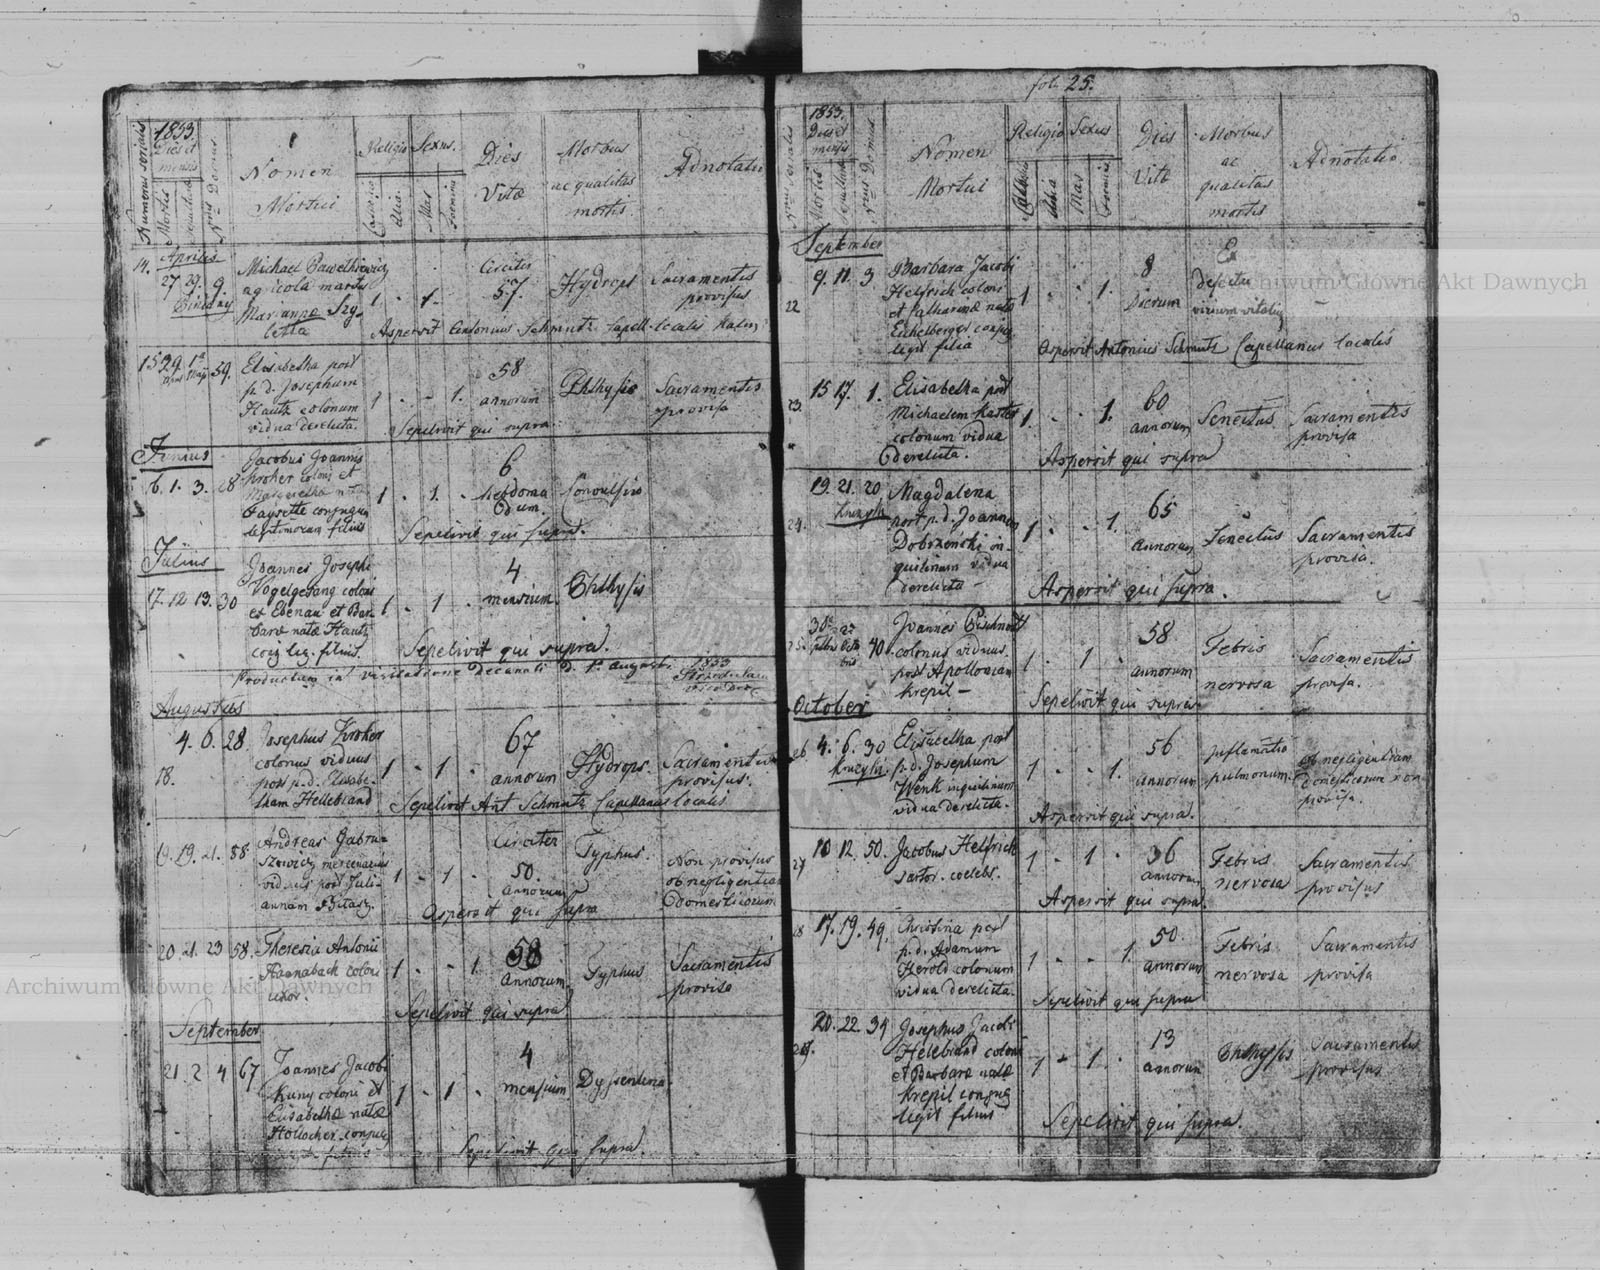 fol. 25.
1853.
Dies et
mensis
Numerus serialis
Mortis
Sepulturae
Nrus Domus
Nomen
Mortui
Religio
Catholica
Alia
Sexus.
Mas
Foemina
Dies
Vitae
Morbus
ac qualitas
mortis.
Adnotatio
Aprilis
14.
27 29. 9.
Michael Pawełkiewicz
agricola maritus
Mariannae Szy-
letta
1 - 1. -
Circiter
57.
Hydrops
Sacramentis
provisus
Aspersit Antonius Schmutz Capell. localis
15 29. 1a 59.
Elisabetha post
p. d. Josephum
Hautz colonum
vidua derelicta.
1 - - 1.
58
annorum
Phthysis
Sacramentis
provisa
Sepelivit qui supra
Junius
16. 1. 3. 28
Jacobus Joannis
Kroher coloni et
Margaretha nata
Paysette conjugum
legitimorum filius
1 - 1. -
6
hebdoma
dum.
Convulsio
Sepelivit qui supra.
Julius
17. 12 13. 30
Joannes Josephi
Vogelgesang coloni
ex Ebenau et Bar-
barae natae Hautz
conj. leg. filius.
1 - 1 -
4
mensium.
Phthysis
Sepelivit qui supra.
Productum in visitatione Decanali d. 1a Augusti 1853
Augustus
18.
4. 6. 28.
Josephus Kroher
colonus viduus
post p. d. Elisabe-
tham Hellebrand
1 - 1 -
67
annorum
Hydrops.
Sacramentis
provisus.
Sepelivit Ant Schmutz Capellanus localis
19. 19. 21. 58
Andreas Gabru-
szewicz mercenarius
viduus post Juli-
annam Bitasz.
1 - 1 -
Circiter
50.
annorum
Typhus.
Non provisus
ob negligentiam
domesticorum
Aspersit qui supra
20. 21. 23 58.
Theresia Antonii
Hannabach coloni
uxor.
1 - - 1
58
annorum
Typhus
Sacramentis
provisa
Sepelivit qui supra
September
21. 2 4 67
Joannes Jacobi
Kuny coloni et
Elisabetha natae
Hollocher conjug
filius
1 - 1 -
4
mensium
Dyssenteria.
Sepelivit qui supra.
Nrus serialis
1853.
Dies et
mensis
Mortis
Sepulturae
Nrus Domus
Nomen
Mortui
Religio
Catholica
Alia
Sexus
Mas
Foemina
Dies
Vitae
Morbus
ac
qualitas
mortis
Adnotatio.
September
22
9. 11. 3
Barbara Jacobi
Helfrich coloni
et Catharinae natae
Eichelberger conjug
legit filia
1 - - 1.
8
Dierum
Ex
defectu
virium vitalium
-
Aspersit Antonius Schmutz Capellanus localis
23.
15 17. 1.
Elisabetha post
Michaelem Kaster
colonum vidua
derelicta.
1. - - 1.
60
annorum
Senectus
Sacramentis
provisa
Aspersit qui supra
24.
19. 21. 20
Magdalena
post p. d. Joannem
Dobrzeński in-
quilinum vidua
derelicta -
1 - - 1.
65
annorum
Senectus
Sacramentis
provisa.
Aspersit qui supra.
25.
30a 2a 40
Septbris Octo
bris
Joannes Bischnott
colonus viduus
post Apolloniam
Krepil -
1. - 1 -
58
annorum
Febris
nervosa
Sacramentis
provisa.
Sepelivit qui supra
October
26 4. 6. 30
Elisabetha post
p. d. Josephum
Wenk inquilinum
vidua derelicta.
1 - - 1.
56
annorum
Inflamatio
pulmonum.
ob negligentiam
domesticorum non
provisa.
Aspersit qui supra.
27
10 12. 50.
Jacobus Helfrich
sartor. coelebs.
1 - 1 -
36
annorum
Febris
nervosa
Sacramentis
provisus
Aspersit qui supra.
28
17. 19. 49.
Christina post
p. d. Adamum
Herold colonum
vidua derelicta.
1 - - 1.
50.
annorum
Febris
nervosa
Sacramentis
provisa
Sepelivit qui supra
29.
20. 22. 34
Josephus Jacobi
Helebrand coloni
et Barbara natae
Krepil conjug
legit filius
1 - 1 -
13
annorum
Phthysis
Sacramentis
provisus
Sepelivit qui supra.
Archiwum Główne Akt Dawnych
Archiwum Główne Akt Dawnych